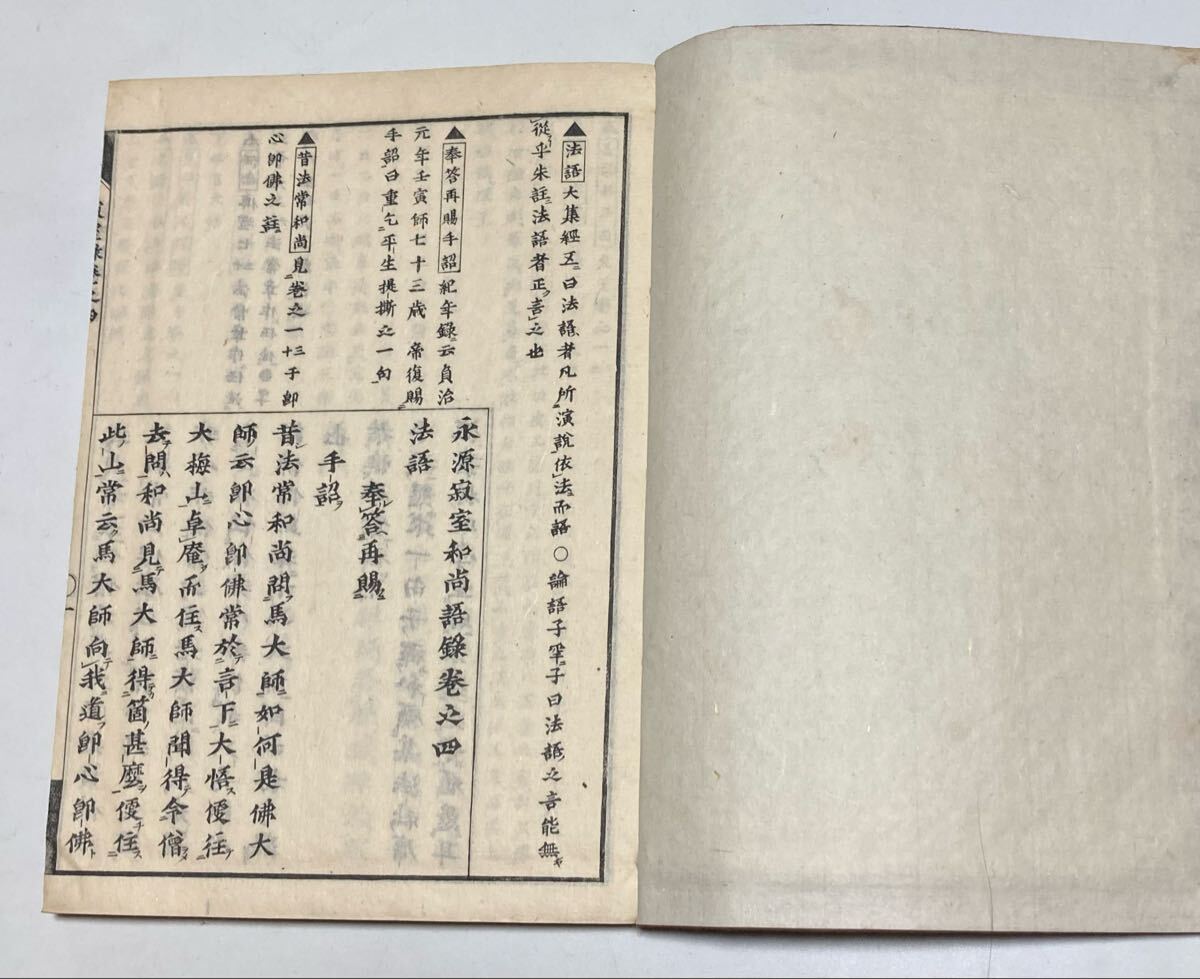 ▲法語大集經五曰法語者凡所演說依法而語○論語子罕子曰法語之言能無
從乎朱註法語者正言之也
▲奉答再賜手詔紀年錄云貞治
元年壬寅師七十三歳 帝復賜
手詔曰重乞平生提撕之一句
▲昔法常和尚見卷之一三十子卽
心卽佛之註
永源寂室和尚語錄卷之四
法語
奉答再賜
手詔
昔法常和尚問馬大師如何是佛大
師云卽心卽佛常於言下大悟便往
大梅山卓庵而住馬大師聞得令僧
去問和尚見馬大師得箇甚麼便住
此山常云馬大師向我道卽心卽佛